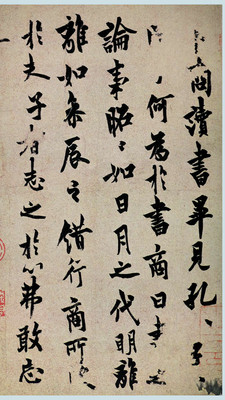 商讀書畢見孔〻子
何為於書商曰書
論事昭〻如日月之代明離
離如參辰之錯行商所
於夫子者志之於心弗敢忘